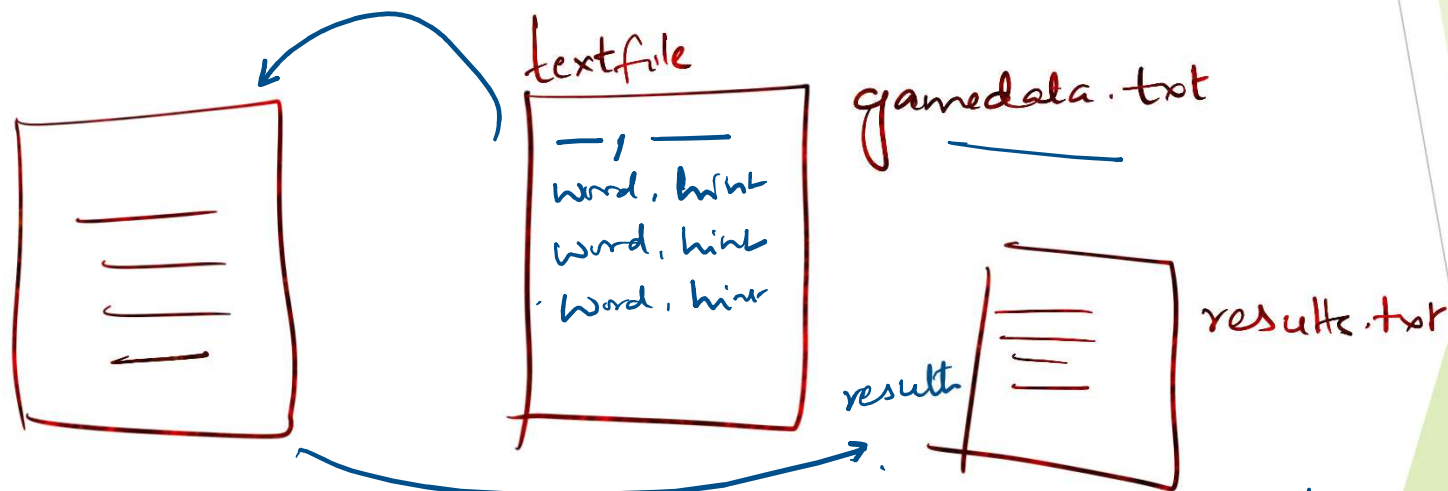 textfile
gamedata.txt
—, —
word, hint
word, hint
word, hint
result
results.txt